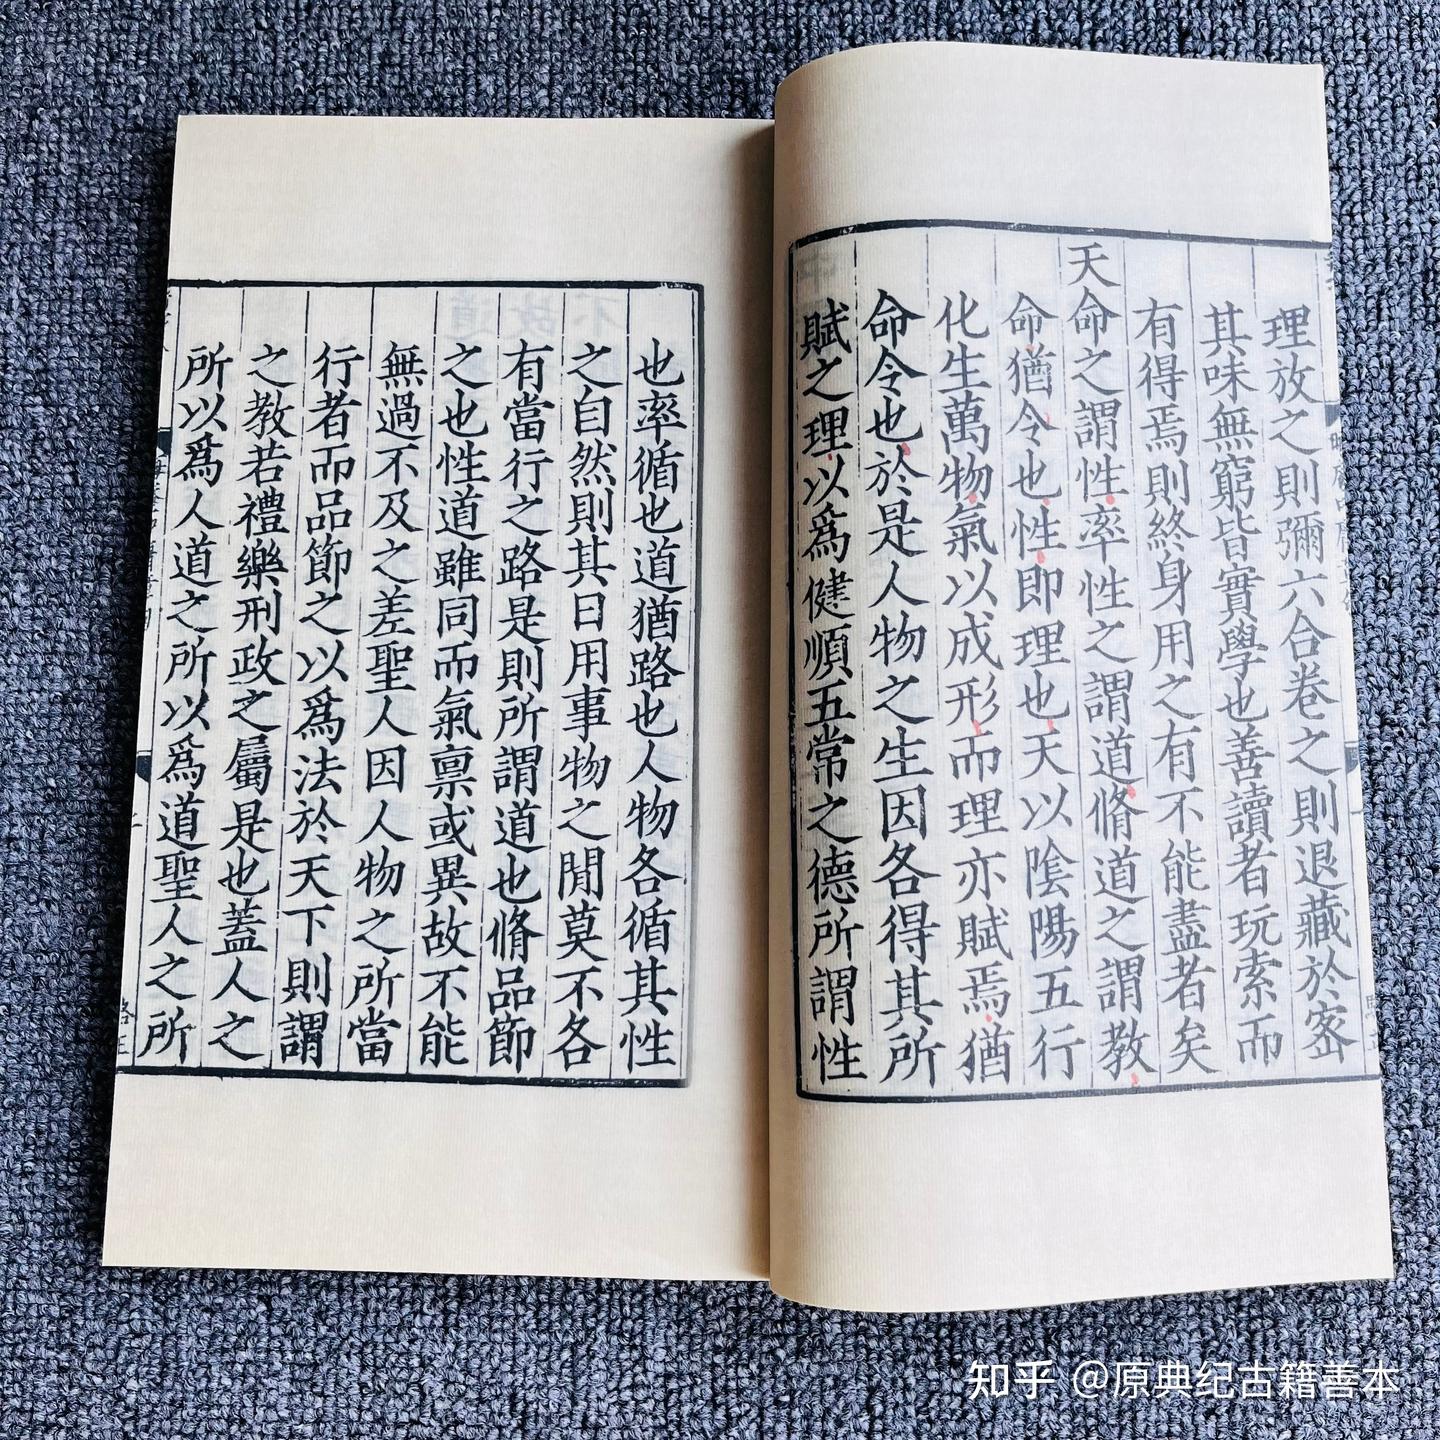 理放之則彌六合卷之則退藏於宻
其味無窮皆實學也善讀者玩索而
有得焉則終身用之有不能盡者矣
天命之謂性率性之謂道脩道之謂教
命猶令也性即理也天以陰陽五行
化生萬物氣以成形而理亦賦焉猶
命令也於是人物之生因各得其所
賦之理以爲健順五常之德所謂性
也率循也道猶路也人物各循其性
之自然則其日用事物之閒莫不各
有當行之路是則所謂道也脩品節
之也性道雖同而氣禀或異故不能
無過不及之差聖人因人物之所當
行者而品節之以爲法於天下則謂
之教若禮樂刑政之屬是也蓋人之
所以爲人道之所以爲道聖人之所
知乎 @原典纪古籍善本